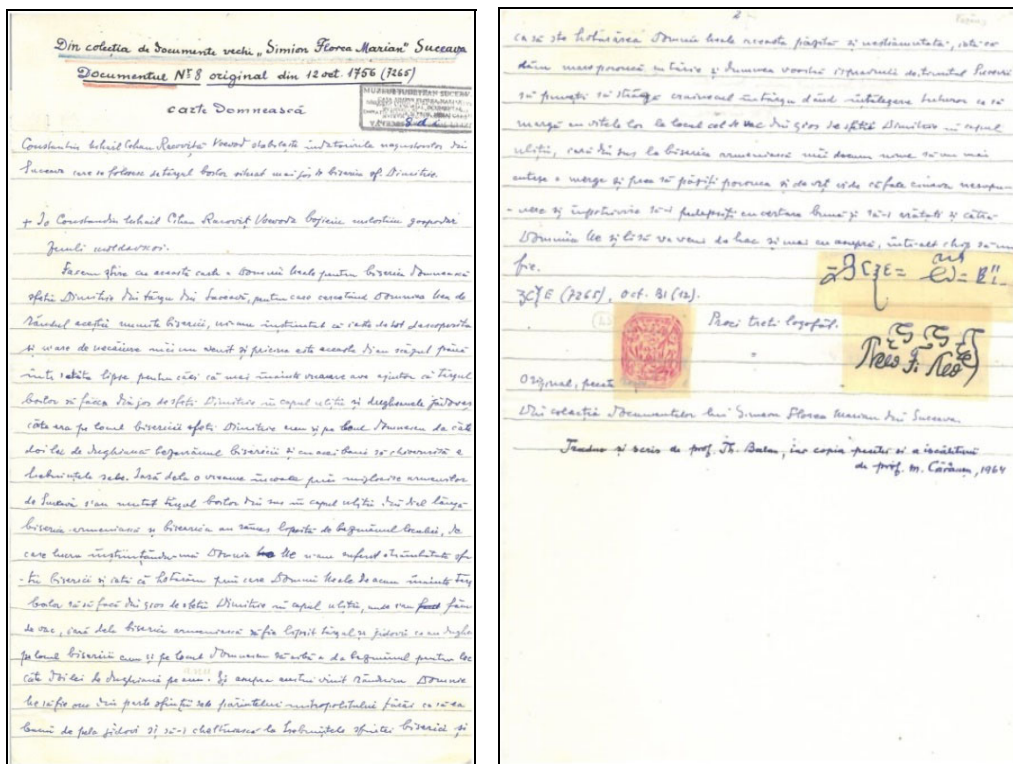 Din colecția de documente vechi „Simion Florea Marian" Suceava
Documentul Nº 8 original din 12 oct. 1756 (7265)
Carte Domnească
Constantin Mihail Cehan Racoviță Voevod stabilește îndatoririle negustorilor din
Suceava care se folosesc de târgul boilor situat mai jos de biserica sf. Dimitrie.
+ Io Constandin Mihail Cihan Racoviț Voevoda bojieiu milostieiu gospodar
Zemli moldavscoi.
Facem știre cu această carte a Domniii Meale pentru biserica Domnească
sfetii Dimitrie din târgu din Suceavă, pentru care cercetând Domnia Mea de
rândul aceștii numite biserici, ne-am înștiințat că iaste de tot descoperită
și
pricina este aceasta
lipse pentru căci că mai înainte vreame ave ajutor că târgul
boilor să făcea din jos de sfetii Dimitrie în capul uliții și dughenele jidovești
câte era pe locul bisericii sfetii Dimitrie cum și pe locul Domnescu da câte
doi lei de dugheană bezmănul bisericii și cu acei bani să chivernise la
trebuințele sale. Iară dela o vreame încoale prin mijlocire armenilor
de Suceavă s'au mutat târgul boilor din sus în capul uliții din deal lângă
biserica armenească și biserica au rămas lipsită de bezmănul locului, de
care lucru înștiințându-mă Domnia Me n-am suferit strâmbătate sfin-
-tei biserici și iată că hotărâm prin care Domnii Meale de acum înainte târgul
boilor să să facă din gios de sfetii Dimitrie în capul uliții, unde s'au făcut
de vac, iară dela biserica armenească să fie lipsit târgul și jidovii ce au dughene
pe locul bisericii cum și pe locul Domnescu să aibă a da bezmănul pentru loc
câte doi lei de dughiană pe an. Și asupra acestui vinit rânduim Domnia
Me să fie om din parte sfinții sale părintelui mitropolitului
banii de pela jidovi și să-i cheltuiască la trebuințele sfintei biserici și
2
ca să ste hotărârea Domnii Meale aceasta păzită și nestrămutată, iată că
dăm mare poroncă cu tărie și dumnea voastră ispravnicii de ținutul Sucevii
să puneți să strige crainicul în târgu dând înțelegere tuturor ca să
margă cu vitele lor la locul cel de vac din gios de sfetii Dimitrie în capul
uliții, iară din sus la biserica armenească mai decum nime să nu mai
cuteze a merge și prea să păziți porunca și de veți vide că face cineva nesupu-
-nere și împotrivire să-i pedepsiți cu certare bună și să-i arătați și cătră
Domnia Me și li să va veni de hac și mai cu asupră, într-alt chip să nu
fie.
(7265), Oct. BI (12).
Proci treti logofăt.
Original, pecete
Din colecția Documentelor lui Simeon Florea Marian din Suceava.
Tradus și scris de prof. Th. Balan, iar copia peceții și a iscăliturii
de prof. M. Cărăușu, 1964